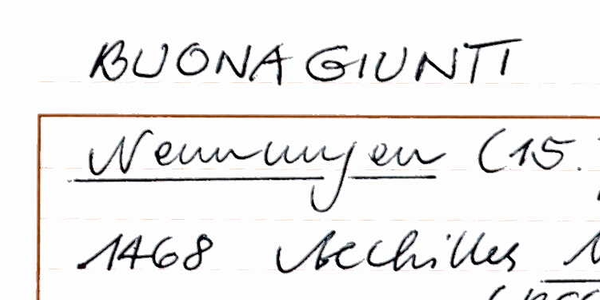 BUONAGIUNTI
Nennungen (15.
1468 Achilles